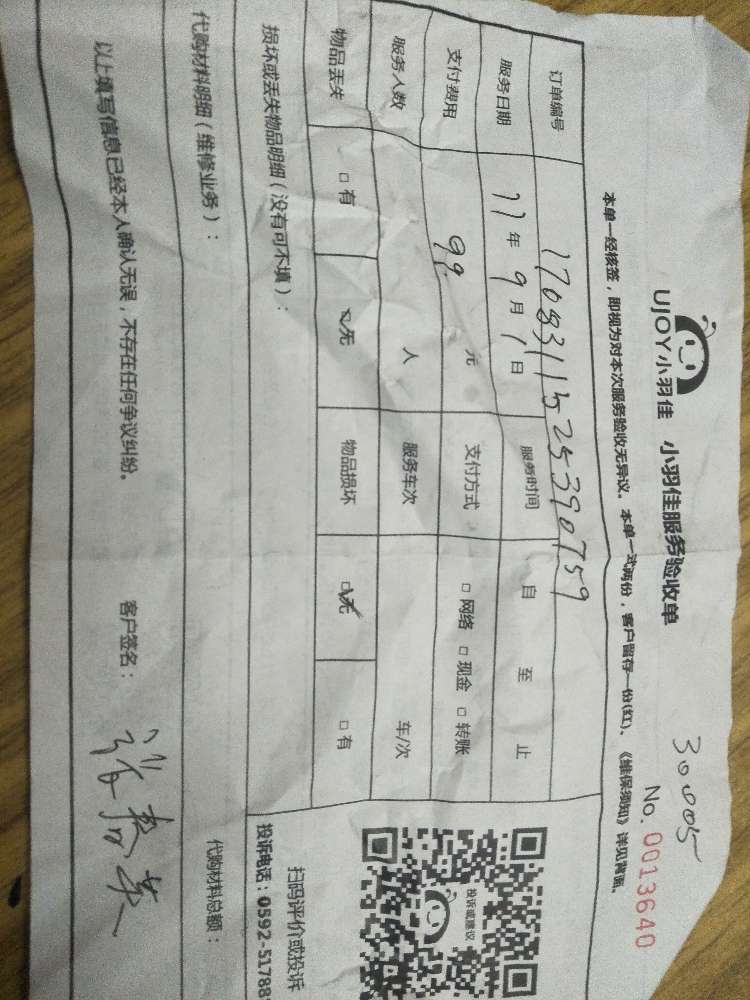 30005
UJOY小羽佳 小羽佳服务验收单
No. 0013640
本单一经核签，即视为对本次服务验收无异议。本单一式两份，客户留存一份(红)、《维保须知》详见背面。
订单编号 1708311525390759
服务日期 17年9月1日 服务时间 自 至 止
支付费用 99. 元 支付方式 □网络 □现金 □转账
服务人数 人 服务车次 车/次
物品丢失 □有 □无 物品损坏 □无 □有
损坏或丢失物品明细（没有可不填）：
投诉或建议
扫码评价或投诉
投诉电话：0592-51788
代购材料明细（维修业务）：
代购材料总额：
以上填写信息已经本人确认无误，不存在任何争议纠纷。 客户签名：